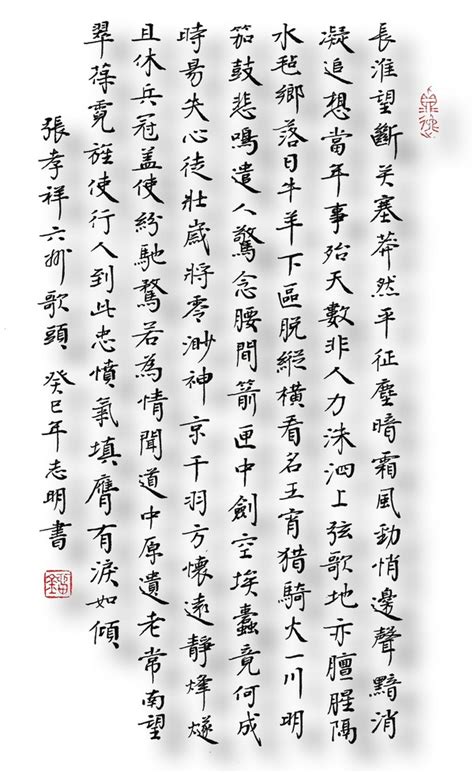 長淮望斷关塞莽然平征塵暗霜風勁悄邊聲黯消
凝追想當年事殆天數非人力洙泗上弦歌地亦膻腥隔
水毡鄉落日牛羊下區脫縱橫看名王宵猎騎火一川明
笳鼓悲鳴遣人驚念腰間箭匣中劍空埃蠹竟何成
時易失心徒壯歲將零渺神京干羽方懷遠靜烽燧
且休兵冠盖使紛馳騖若為情聞道中原遺老常南望
翠葆霓旌使行人到此忠憤氣填膺有淚如傾
張孝祥六州歌頭 癸巳年志明書